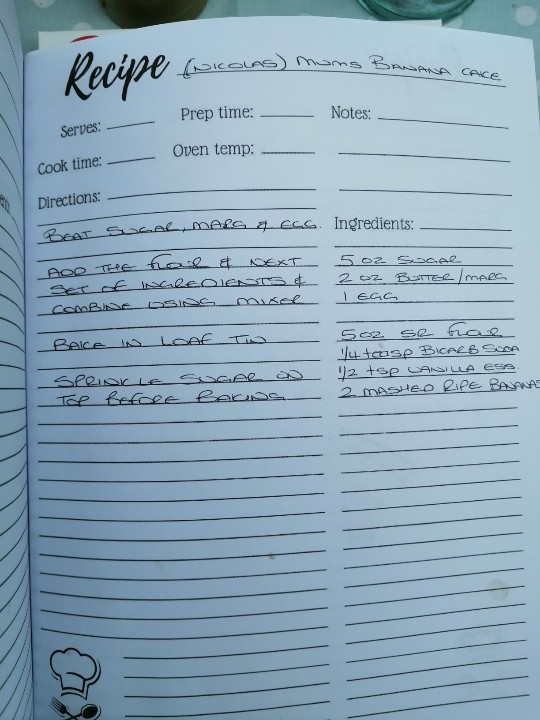 Recipe (NICOLAS) MUMS BANANA CAKE
Serves:
Prep time:
Notes:
Cook time:
Oven temp:
Directions:
BEAT SUGAR, MARG & EGG.
ADD THE FLOUR & NEXT
SET OF INGREDIENTS &
COMBINE USING MIXER
BAKE IN LOAF TIN
SPRINKLE SUGAR ON
TOP BEFORE BAKING
Ingredients:
5 OZ SUGAR
2 OZ BUTTER/MARG
1 EGG
5OZ SR FLOUR
1/4 teasp BICARB SODA
1/2 tSP VANILLA ESS
2 MASHED RIPE BANANAS